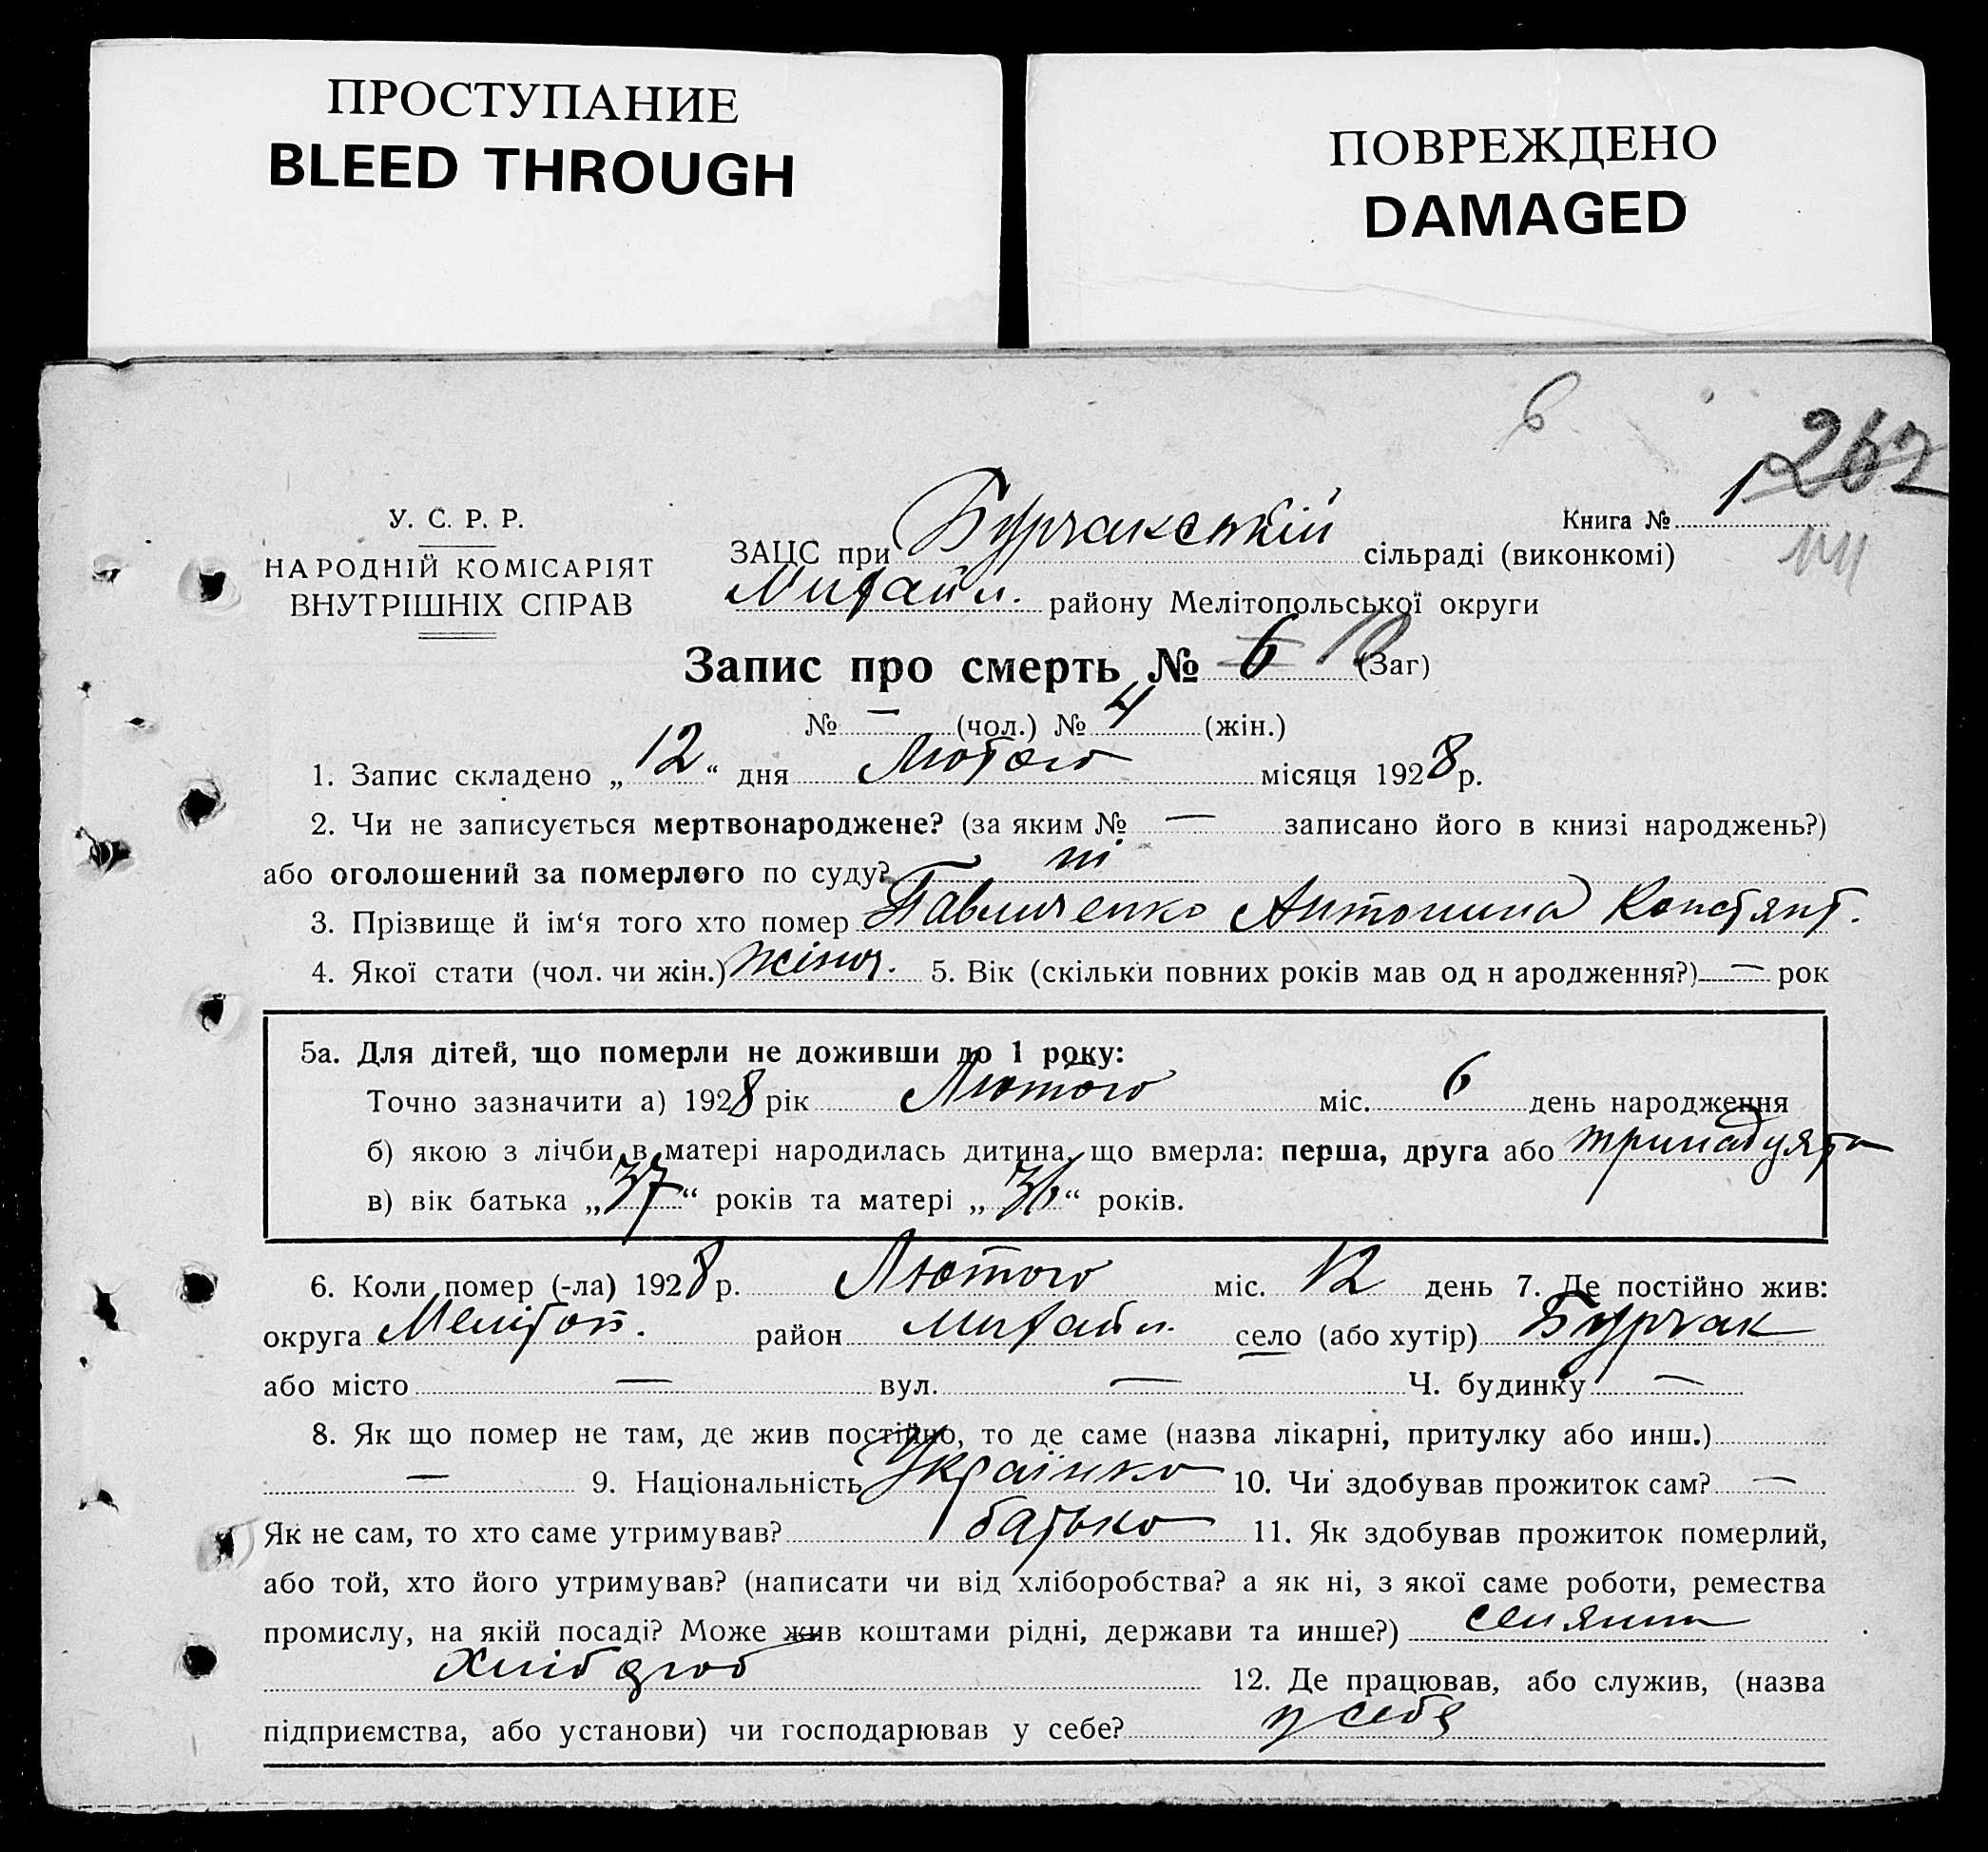 ПРОСТУПАНИЕ
BLEED THROUGH
ПОВРЕЖДЕНО
DAMAGED
6
262
У. С. Р. Р.
НАРОДНІЙ КОМІСАРІЯТ
ВНУТРІШНІХ СПРАВ
Книга № 1
144
ЗАЦС при Бурчакській сільраді (виконкомі)
Михайл. району Мелітопольської округи
Запис про смерть № 6 10 (Заг)
№ — (чол.) № 4 (жін.)
1. Запис складено „12“ дня Лютого місяця 1928 р.
2. Чи не записується мертвонароджене? (за яким № — записано його в книзі народжень?)
або оголошений за померлого по суду? ні
3. Прізвище й ім‘я того хто помер Павличенко Антонина Констянт.
4. Якої стати (чол. чи жін.) жіноч. 5. Вік (скільки повних років мав од н ародження?) — рок
5а. Для дітей, що померли не доживши до 1 року:
Точно зазначити а) 1928 рік Лютого міс. 6 день народження
б) якою з лічби в матері народилась дитина, що вмерла: перша, друга або тринадцята
в) вік батька „37“ років та матері „36“ років.
6. Коли помер (-ла) 1928 р. Лютого міс. 12 день 7. Де постійно жив:
округа Мелітоп. район Михайл. село (або хутір) Бурчак
або місто — вул. — Ч. будинку —
8. Як що помер не там, де жив постійно, то де саме (назва лікарні, притулку або инш.)
— 9. Національність Українка 10. Чи здобував прожиток сам? —
Як не сам, то хто саме утримував? батько 11. Як здобував прожиток померлий,
або той, хто його утримував? (написати чи від хліборобства? а як ні, з якої саме роботи, ремества
промислу, на якій посаді? Може жив коштами рідні, держави та инше?) селянин
12. Де працював, або служив, (назва
підприємства, або установи) чи господарював у себе? у себе